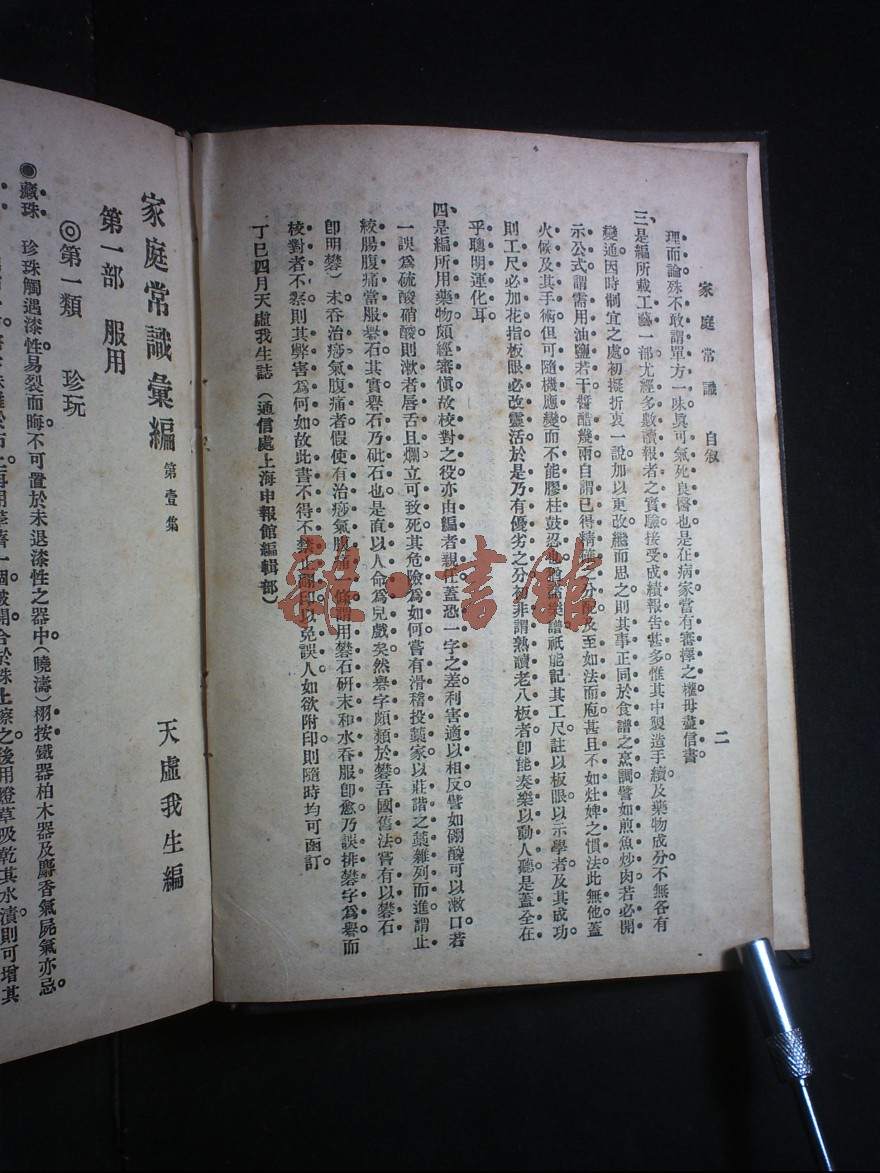 家庭常識 自敘
二
理而論殊不敢謂單方一味真可氣死良醫也是在病家當有審擇之權毋盡信書
三、是編所載工藝一部尤經多數讀報者之實驗接受成績報告甚多惟其中製造手續及藥物成分不無各有
變通因時制宜之處初擬折衷一說加以更改繼而思之則其事正同於食譜之烹調譬如煎魚炒肉若必開
示公式謂需用油鹽若干醬醋幾兩自謂已得精確之分配及至如法而庖甚且不如灶婢之慣法此無他蓋
火候及其手術但可隨機應變而不能膠柱鼓瑟也譜祇能記其工尺註以板眼以示學者及其成功
則工尺必加花指板眼必改靈活於是乃有優劣之分初非謂熟讀老八板者卽能奏樂以動人聽是蓋全在
乎聰明運化耳
四、是編所用藥物頗經審慎故校對之役亦由編者親任蓋恐一字之差利害適以相反譬如硼酸可以漱口若
一誤爲硫酸硝酸則漱者唇舌且爛立可致死其危險爲如何嘗有滑稽投藁家以莊諧之藁雜列而進謂止
絞腸腹痛當服礜石其實礜石乃砒石也是直以人命爲兒戲矣然礜字頗類於礬吾國舊法嘗有以礬石
卽明礬)末吞治痧氣腹痛者假使有治痧氣腹痛一條謂用礬石研末和水吞服卽愈乃誤排礬字爲礜而
校對者不察則其弊害爲何如故此書不得不禁止翻印以免誤人如欲附印則隨時均可函訂
丁巳四月天虛我生誌(通信處上海申報館編輯部)
家庭常識彙編 第壹集
天虛我生編
第一部 服用
◎第一類 珍玩
●藏珠 珍珠觸遇漆性易裂而晦不可置於未退漆性之器中(曉濤)栩按鐵器柏木器及麝香氣屍氣亦忌
再用 一個破開合於珠上擦之後用燈草吸乾其水漬則可增其
雜·書館